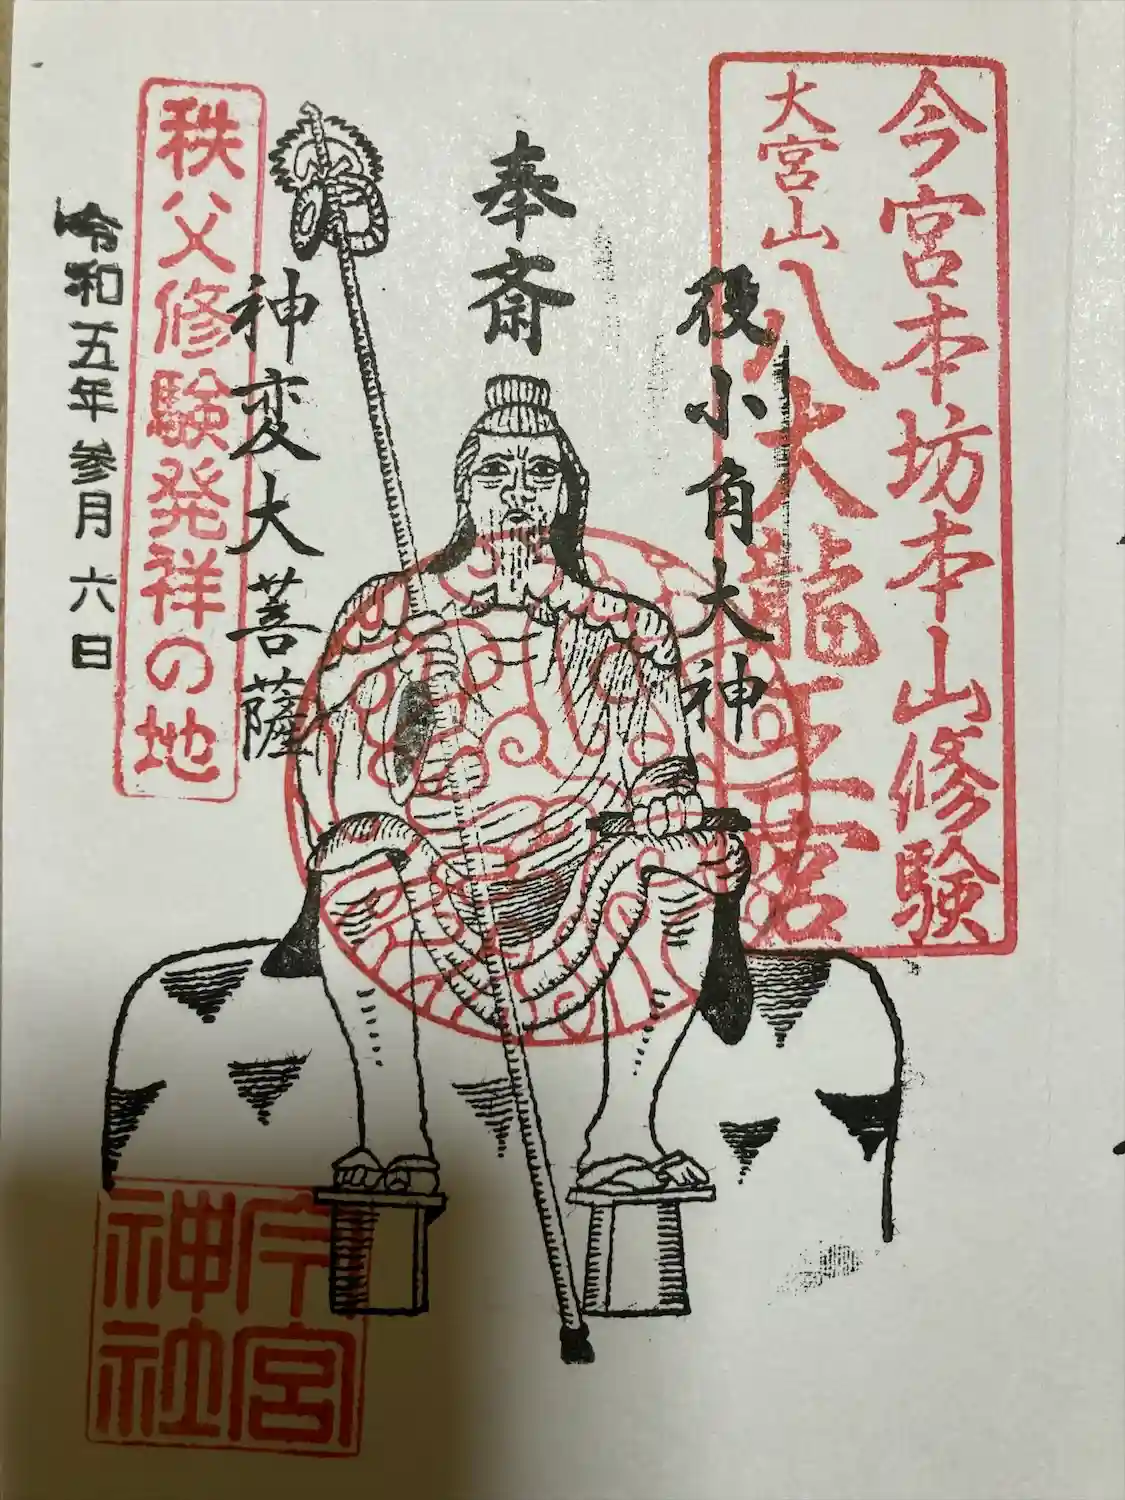 今宮本坊本山修験
大宮山八大龍王宮
役小角大神
奉斎
神変大菩薩
秩父修験発祥の地
令和五年参月六日
今宮
神社